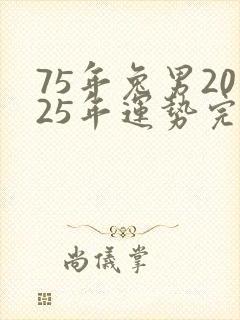 75年兔男20
25年運勢完
尚儀掌